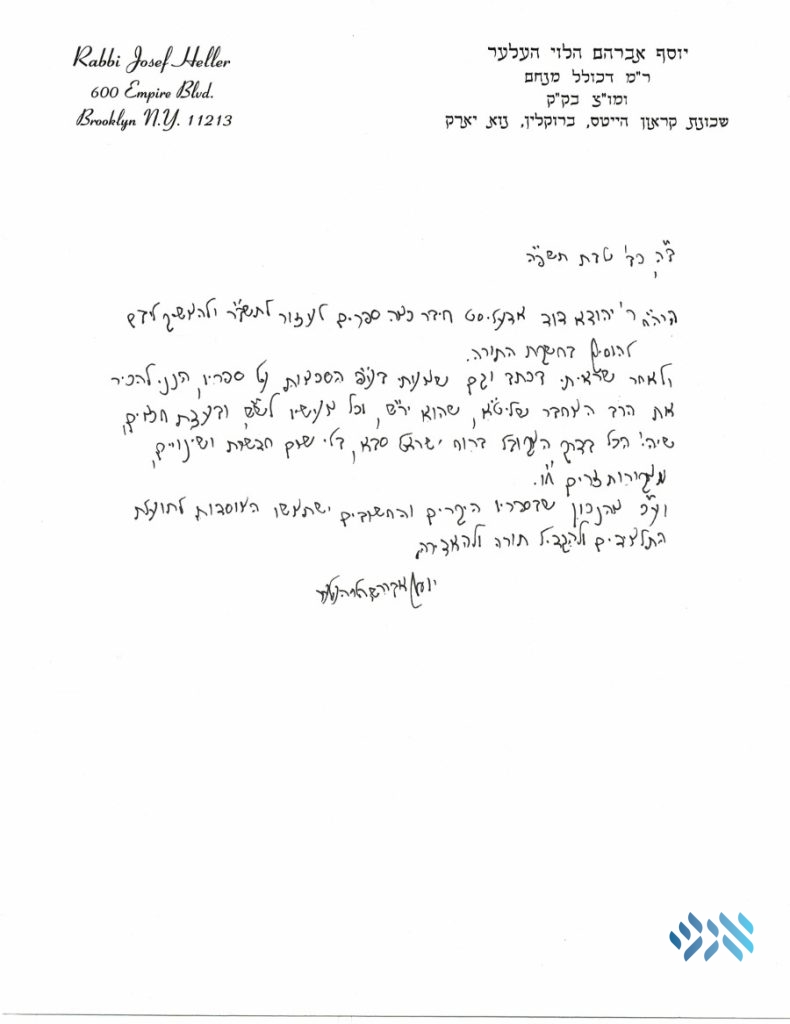 Rabbi Josef Heller
600 Empire Blvd.
Brooklyn N.Y. 11213
יוסף אברהם הלוי העלער
ר"מ דכולל מנחם
ומו"צ בק"ק
שכונת קראון הייטס, ברוקלין, נוא יארק
ב"ה, כב' טבת תשפ"ה
הרה"ח ר' יהודא דוד חיבר כמה ספרים לעזור
להוסיף בחשקת התורה.
ולאחר שראיתי בכתב וגם שמעתי הסכמות על ספריו, הנני להכיר
את הרב המחבר שליט"א, שהוא יר"ש, וכל מעשיו לש"ש, ובעצת חכמים,
שיהי' הכל בדרך המקובל ברוח ישראל סבא, בלי שום חדשות ושינויים,
ממקורות זרים ח"ו.
וע"כ מהנכון שבספריו היקרים והחשובים ישתמשו המוסדות לתועלת
התלמידים ולהגדיל תורה ולהאדירה
אנש